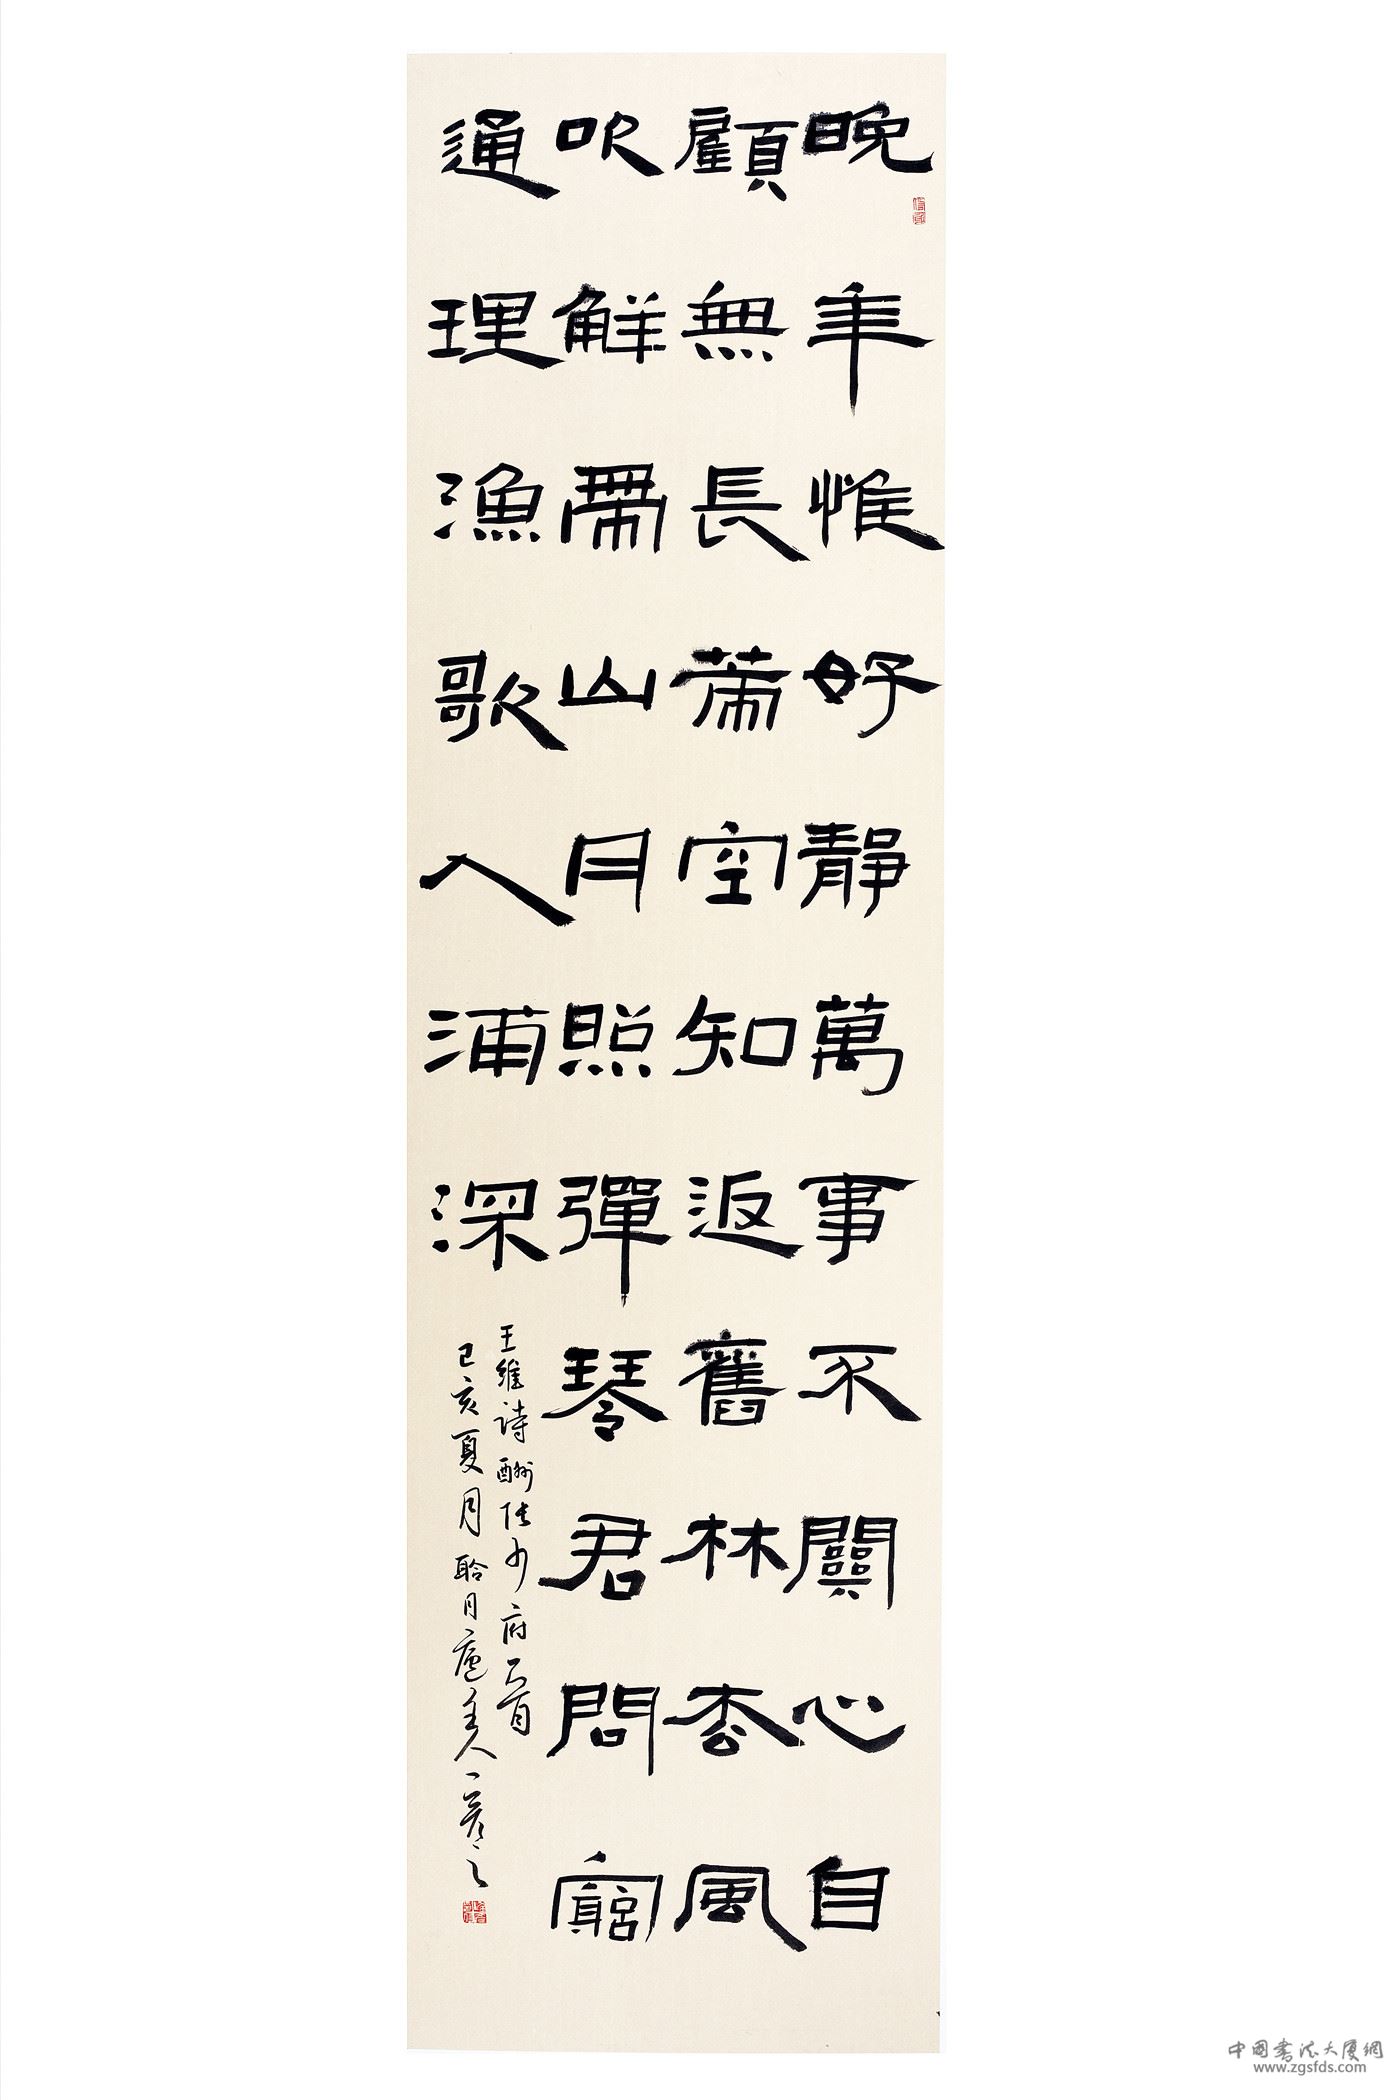 晚年惟好靜萬事不關心自
顧無長策空知返舊林松風
吹解帶山月照彈琴君問窮
通理漁歌入浦深
王維詩酬張少府一首
己亥夏月聆月主人
中國書法大廈網
www.zgsfds.com